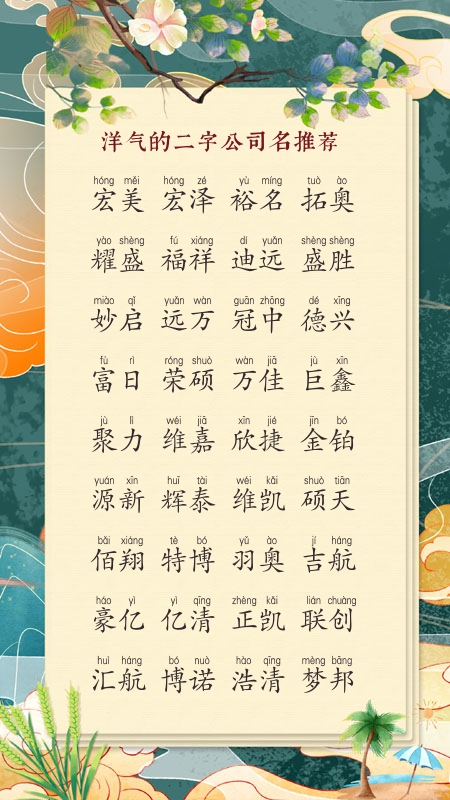 洋气的二字公司名推荐
hóng měi hóng zé yù míng tuò ào
宏美 宏泽 裕名 拓奥
yào shèng fú xiáng dí yuǎn shèng shèng
耀盛 福祥 迪远 盛胜
miào qǐ yuǎn wàn guān zhōng dé xīng
妙启 远万 冠中 德兴
fù rì róng shuò wàn jiā jù xīn
富日 荣硕 万佳 巨鑫
jù lì wéi jiā xīn jié jīn bó
聚力 维嘉 欣捷 金铂
yuán xīn huī tài wéi kǎi shuò tiān
源新 辉泰 维凯 硕天
bǎi xiáng tè bó yǔ ào jí háng
佰翔 特博 羽奥 吉航
háo yì yì qīng zhèng kǎi lián chuàng
豪亿 亿清 正凯 联创
huì háng bó nuò hào qīng mèng bāng
汇航 博诺 浩清 梦邦